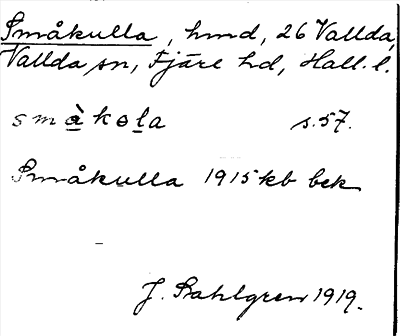 Småkulla, hmd, 26 Vallda,
Vallda sn, Fjäre hd, Hall. l.
smàkola s. 57.
Småkulla 1915 kb bek
J. Sahlgren 1919.